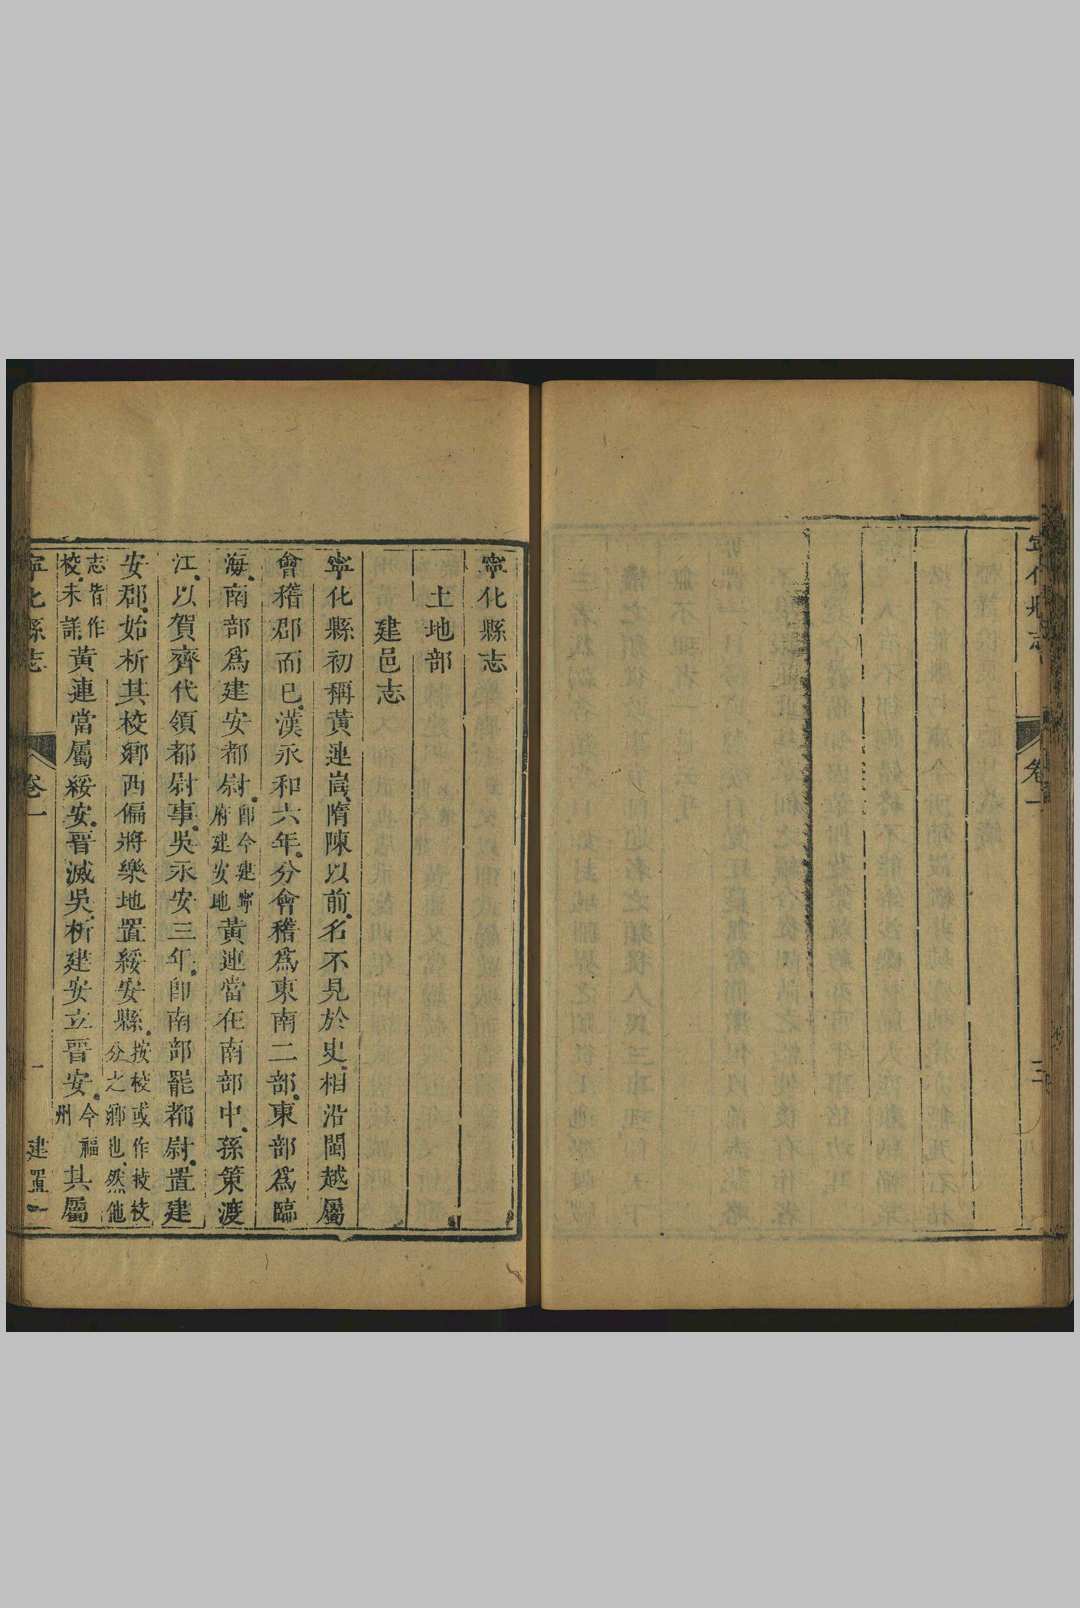 寧化縣志
卷一
三
寧化縣志
土地部
建邑志
寧化縣初稱黃連峝隋陳以前名不見於史相沿閩越屬
會稽郡而已漢永和六年分會稽為東南二部東部為臨
海南部為建安都尉卽今建寧府建安地黃連當在南部中孫策渡
江以賀齊代領都尉事吳永安三年卽南部罷都尉置建
安郡始析其校鄉西偏將樂地置綏安縣按校或作枝校分之鄉也然他
志皆作校未詳黃連當屬綏安晉滅吳析建安立晉安今福州其屬
寧化縣志
卷一
建置
一